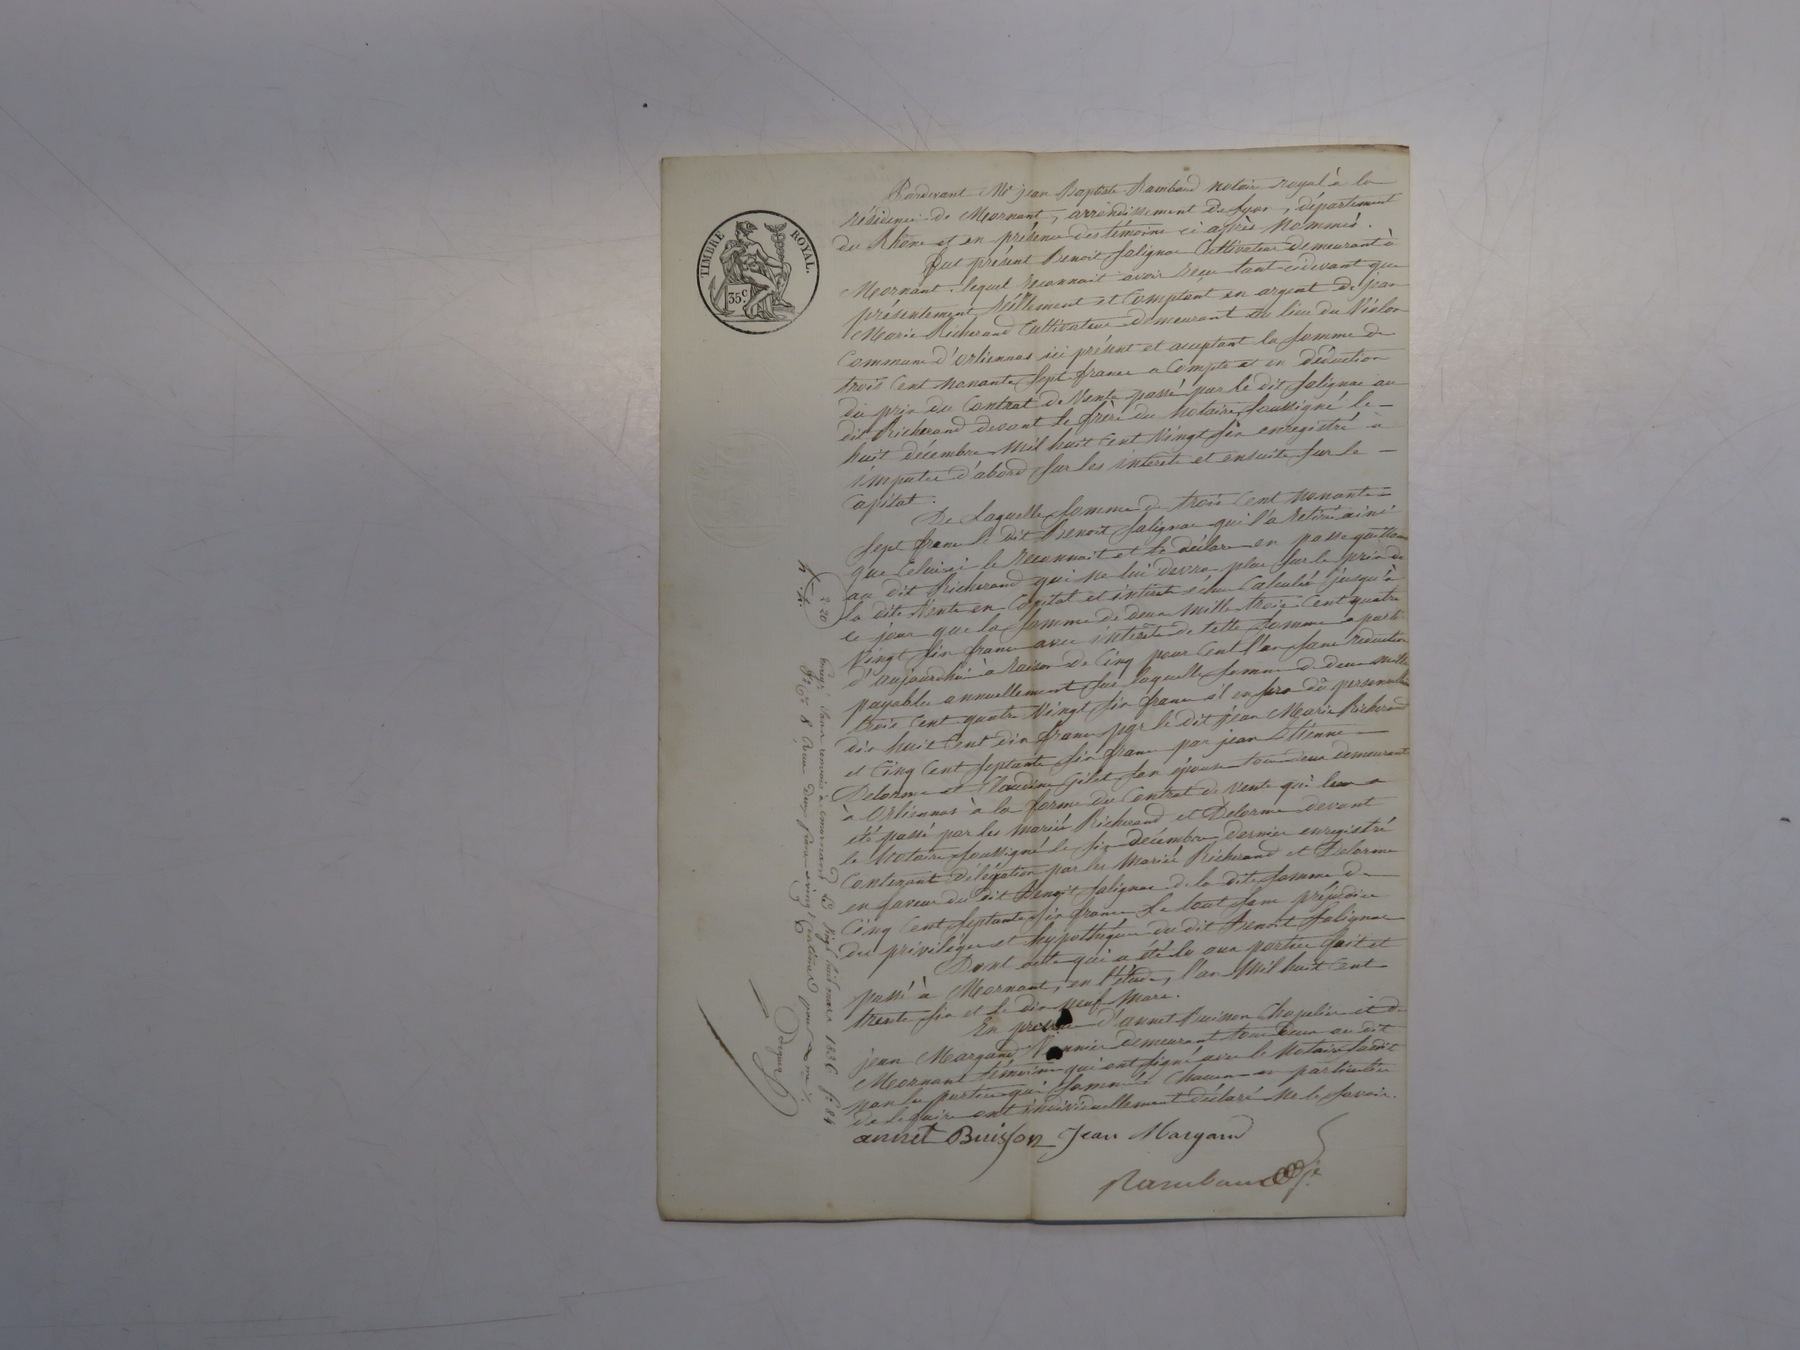 TIMBRE ROYAL.
35c
Pardevant Me jean Baptiste Rambaud notaire royal à la
résidence de Mornant, arrondissement de Lyon, département
du Rhône et en présence des témoins ci après Nommés.
Fut présent Benoit Salignac Cultivateur demeurant à
Mornant. lequel reconnait avoir reçu tant cidevant que
présentement réellement et Comptant en argent de jean
Marie Richerand Cultivateur demeurant au lieu du Violon
Commune d'orliennas ici présent et acceptant la somme de
trois Cent nonante Sept francs a Compte et en déduction
du prix du Contrat de Vente passé par le dit Salignac au
dit Richerand devant le frère du notaire Soussigné le
huit décembre Mil huit Cent Vingt Six enregistré à
imputer d'abord Sur les intérêts et ensuite Sur le
Capital.
De Laquelle Somme de trois Cent nonante
Sept francs le dit Benoit Salignac qui l'a retiré ainsi
que Celuici le reconnait et le déclare en passe quittance
au dit Richerand qui ne lui devra plus Sur le prix de
la dite Vente en Capital et intérêts échus Calculés jusqu'à
Ce jour que la Somme de deux Mille trois Cent quatre
Vingt Six francs avec intérêts de Cette Somme a partir
d'aujourdhui à raison de Cinq pour Cent l'an Sans réduction
payables annuellement Sur laquelle Somme de deux mille
trois Cent quatre Vingt Six francs il en sera dû personnellement
dix huit Cent dix francs par le dit jean Marie Richerand
et Cinq Cent Septante Six francs par jean Etienne
Delorme et Claudine Gilet Son épouse tous deux demeurants
à Orliennas à la forme du Contrat de Vente qui leur a
été passé par les mariés Richerand et Delorme devant
le Notaire Soussigné le Six décembre dernier enregistré
Contenant délégation par les Mariés Richerand et Delorme
en faveur du dit Benoit Salignac de la dite Somme de
Cinq Cent Septante Six francs Le tout Sans préjudice
des privilèges et hypothèques du dit Benoit Salignac
Dont acte qui a été lu aux parties fait et
passé à Mornant, en l'étude, l'an Mil huit Cent
trente Six et le dix neuf Mars.
En présence d'annet Buisson Chapelier et de
jean Margand demeurant tous deux au dit
Mornant témoins qui ont Signé avec le Notaire
non les parties qui Sommées Chacun en particulier
de le faire ont individuellement déclaré Ne le Savoir.
annet Buisson Jean Margand
Rambaud
2 20
Enregé Sans renvois à mornand Le Vingt huit mars 1836 fo 84
Reçu deux francs vingt centimes